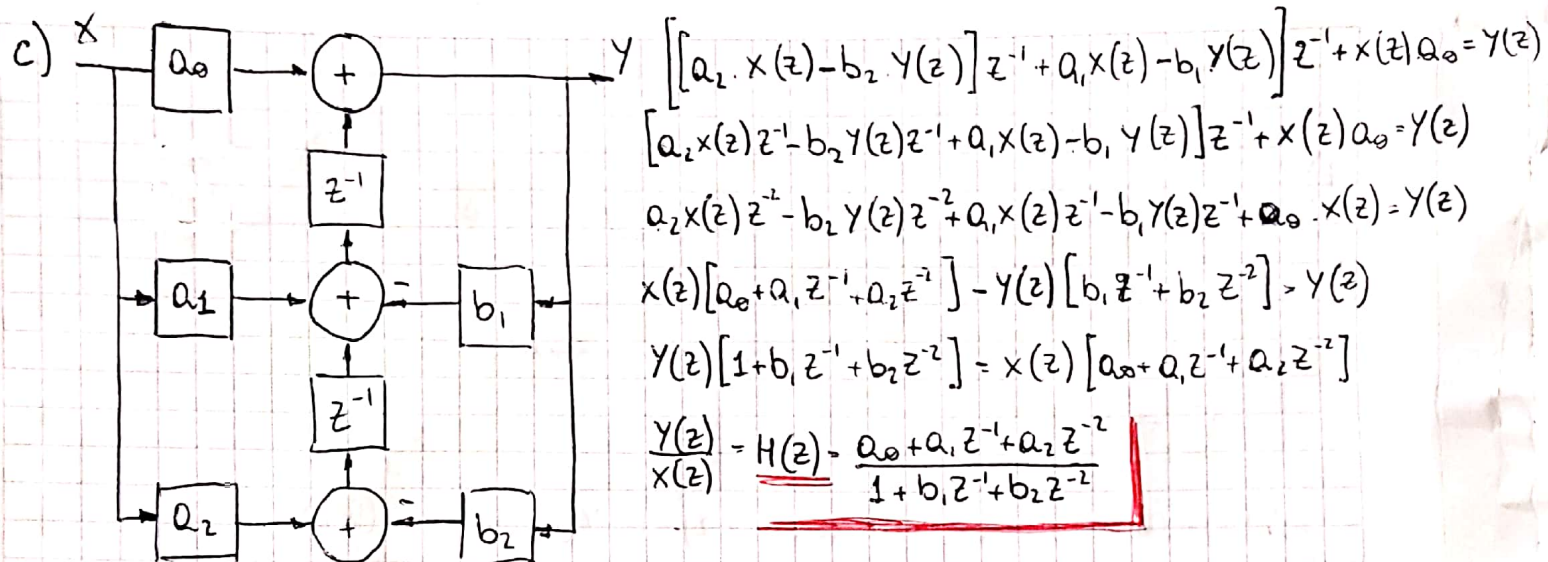 c) X
a0
+
Y
z⁻¹
a1
+
-
b₁
z⁻¹
a₂
+
-
b₂
[[a₂·X(z)-b₂·Y(z)]z⁻¹+a₁X(z)-b₁Y(z)]z⁻¹+X(z)a0=Y(z)
[a₂X(z)z⁻¹-b₂Y(z)z⁻¹+a₁X(z)-b₁Y(z)]z⁻¹+X(z)a0=Y(z)
a₂X(z)z⁻²-b₂Y(z)z⁻²+a₁X(z)z⁻¹-b₁Y(z)z⁻¹+a0·X(z)=Y(z)
X(z)[a0+a₁z⁻¹+a₂z⁻²]-Y(z)[b₁z⁻¹+b₂z⁻²]=Y(z)
Y(z)[1+b₁z⁻¹+b₂z⁻²]=X(z)[a0+a₁z⁻¹+a₂z⁻²]
Y(z)/X(z)=H(z)=a0+a₁z⁻¹+a₂z⁻²/1+b₁z⁻¹+b₂z⁻²